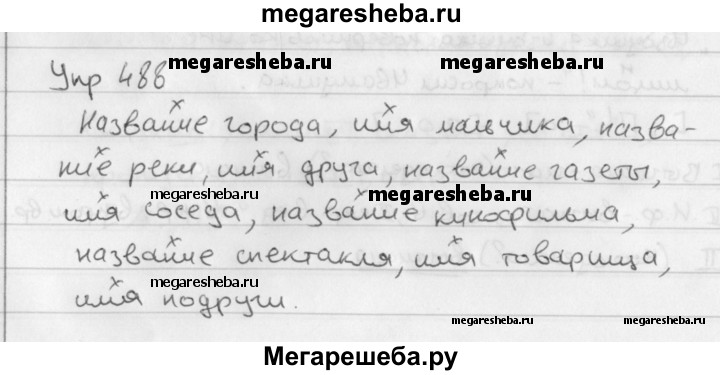 megaresheba.ru
Упр 486
megaresheba.ru
Название города, имя мальчика, назва-
ние реки, имя друга, название газеты,
megaresheba.ru
megaresheba.ru
имя соседа, название кинофильма,
название спектакля, имя товарища,
megaresheba.ru
имя подруги.
megaresheba.ru
megaresheba.ru
Мегарешеба.ру